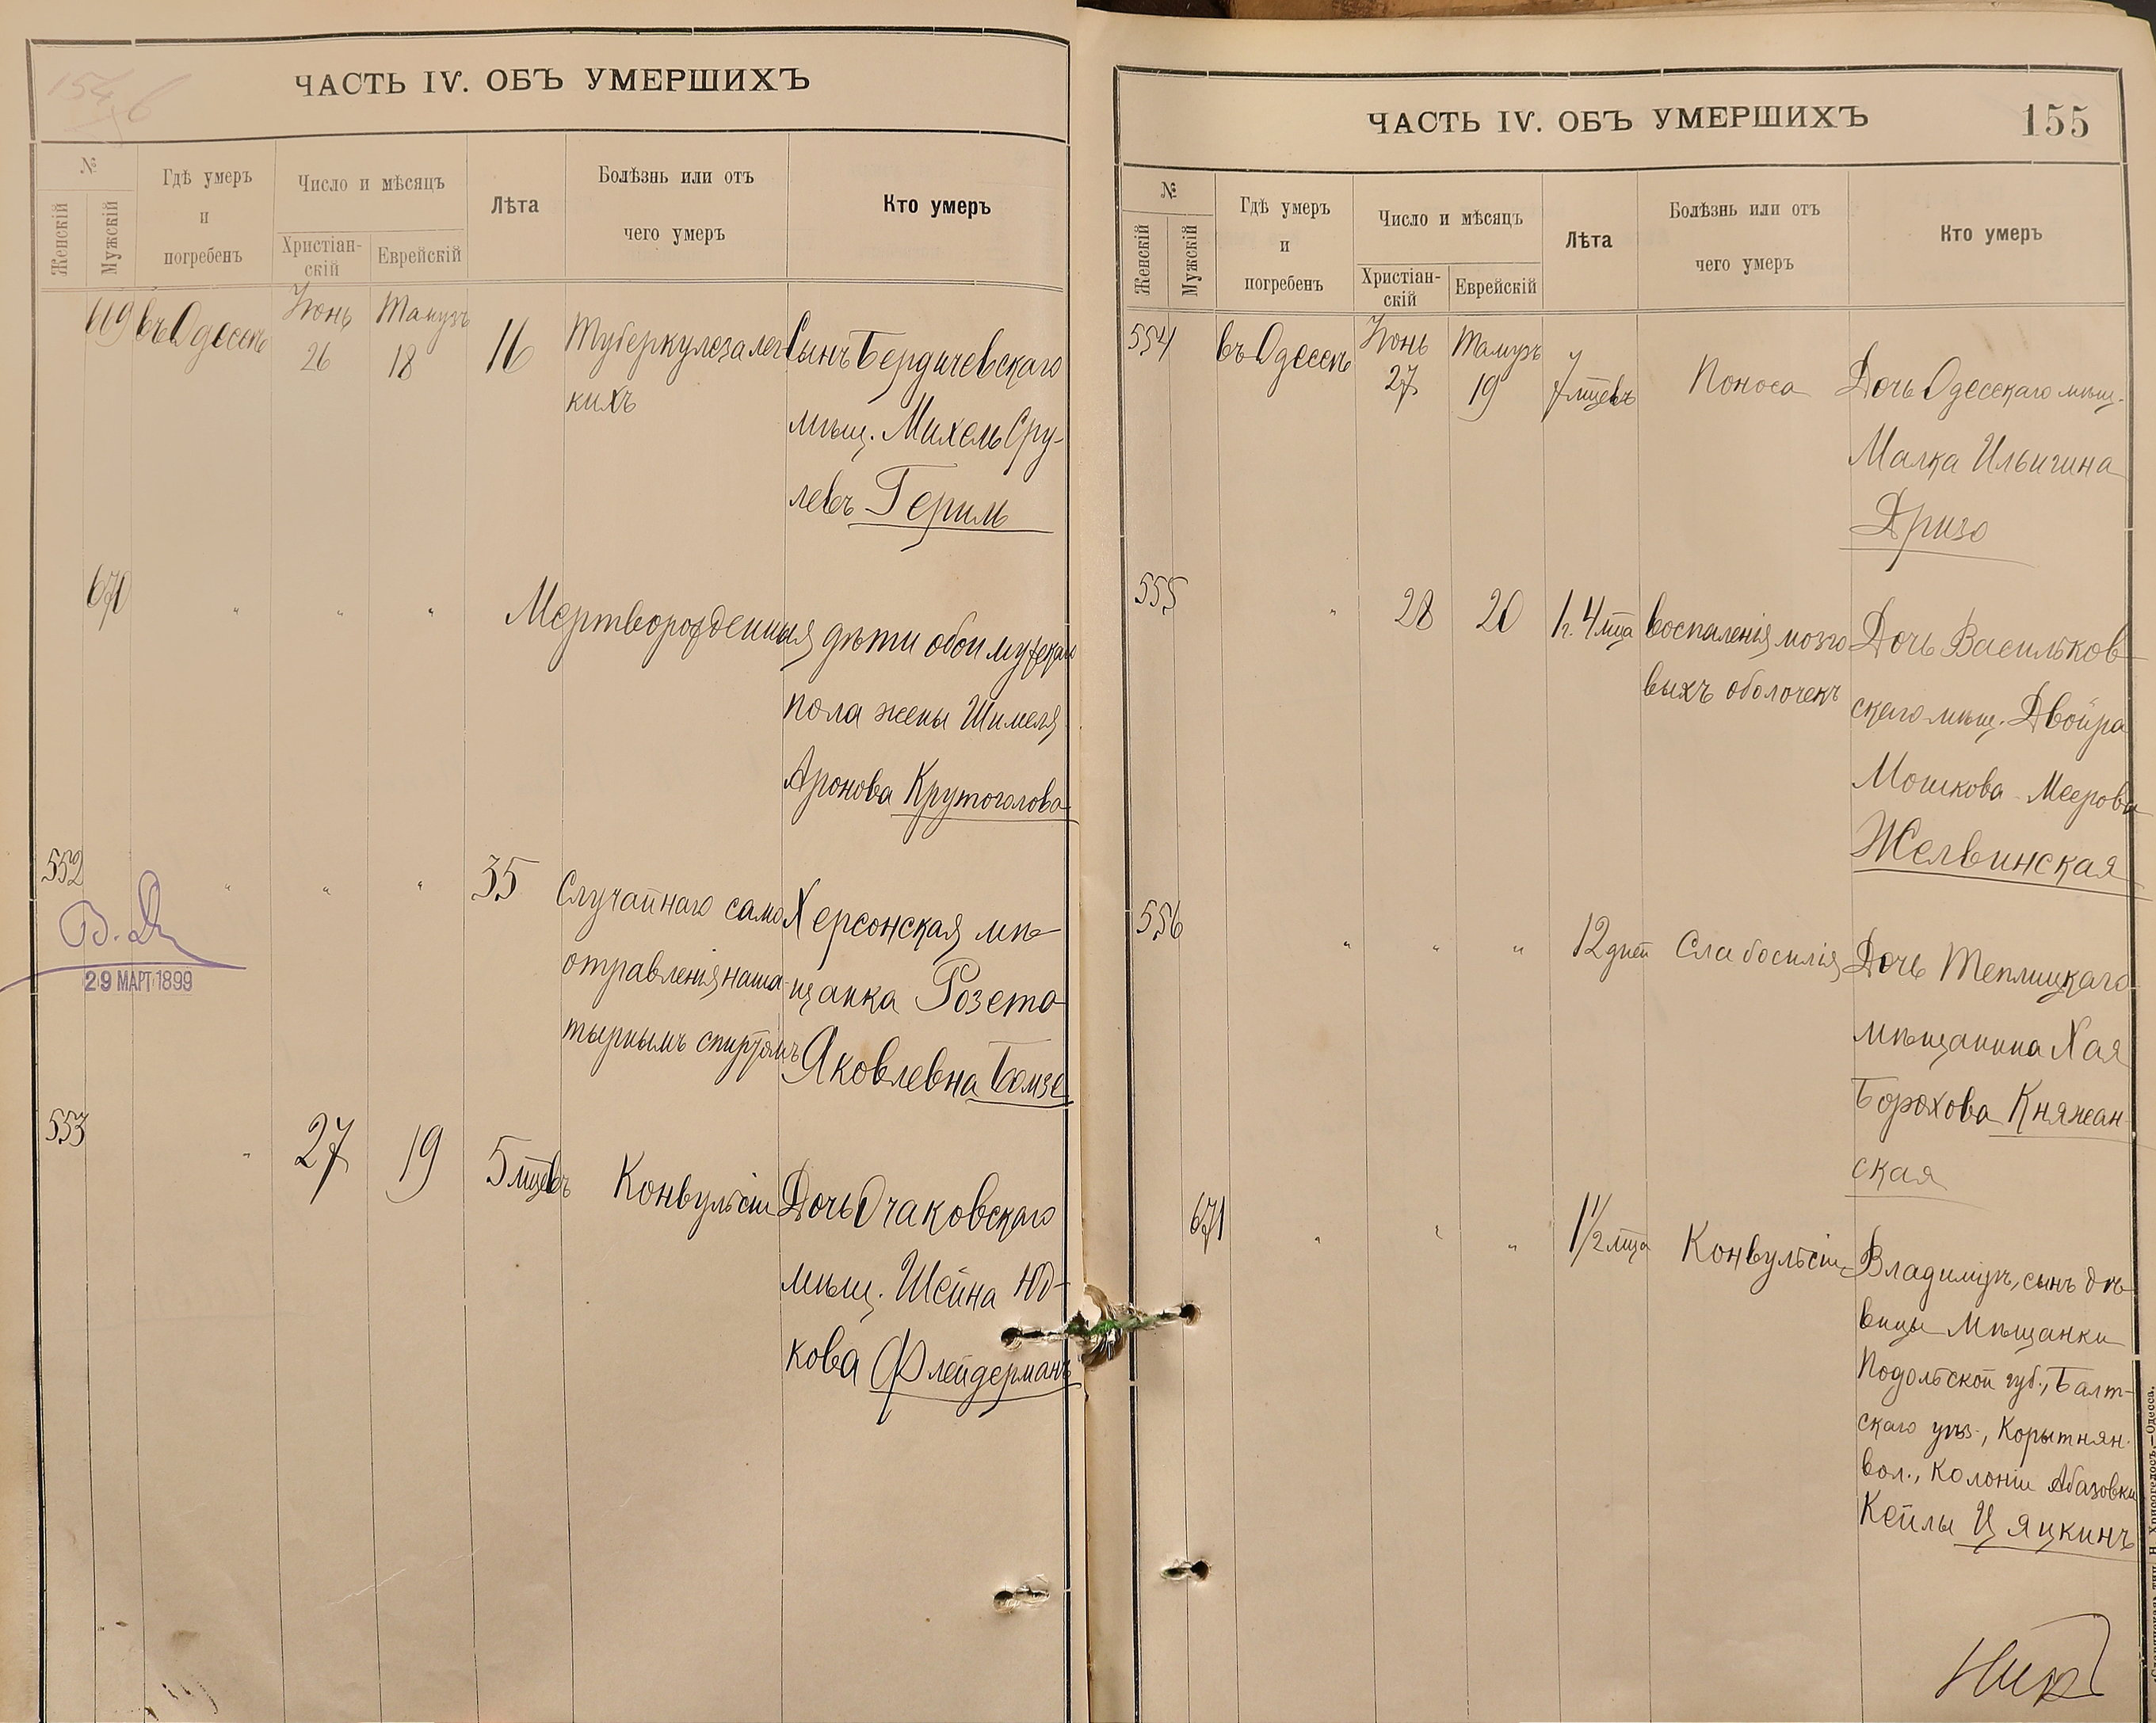 ЧАСТЬ IV. ОБЪ УМЕРШИХЪ
№
Женскій
Мужскій
Гдѣ умеръ
и
погребенъ
Число и мѣсяцъ
Христіан-
скій
Еврейскій
Лѣта
Болѣзнь или отъ
чего умеръ
Кто умеръ
669
въ Одессѣ
Іюнь
26
Тамузъ
18
16
Туберкулеза лег-
кихъ
Сынъ Бердичевскаго
мѣщ. Михель Сру-
левъ Герим
670
"
"
"
Мертворожденныя дѣти обои мужскаго
пола жены Шимеля
Аронова Крутоголова
552
"
"
"
35
Случайнаго само
отравленія наша-
тырнымъ спиртомъ
Херсонская мѣ-
щанка Розета
Яковлевна Бомзе
29 МАРТ 1899
553
"
27
19
5 мцевъ
Конвульсіи
Дочь Очаковскаго
мѣщ. Шейна Юд-
кова Флейдерманъ
ЧАСТЬ IV. ОБЪ УМЕРШИХЪ
155
№
Женскій
Мужскій
Гдѣ умеръ
и
погребенъ
Число и мѣсяцъ
Христіан-
скій
Еврейскій
Лѣта
Болѣзнь или отъ
чего умеръ
Кто умеръ
554
въ Одессѣ
Іюнь
27
Тамузъ
19
7 мцевъ
Поноса
Дочь Одесскаго мѣщ.
Малка Ильигина
Аризо
555
"
28
20
1 г. 4 мца
воспаленія мозго
выхъ оболочекъ
Дочь Васильков
скаго мѣщ. Двойра
Мошкова-Меерова
Желвинская
556
"
"
"
12 дней
Слабосилія
Дочь Теплицкаго
мѣщанина Хая
Борохова Княжан-
ская
671
"
"
"
1 1/2 мца
Конвульсіи
Владиміръ, сынъ дѣ-
вицы Мѣщанки
Подольской губ., Балт-
скаго уѣз., Корытнян.
вол., Колоніи Абазовки
Кейлы Цяцкинъ
«Славянская» тип. Н. Хрисогелосъ.—Одесса.